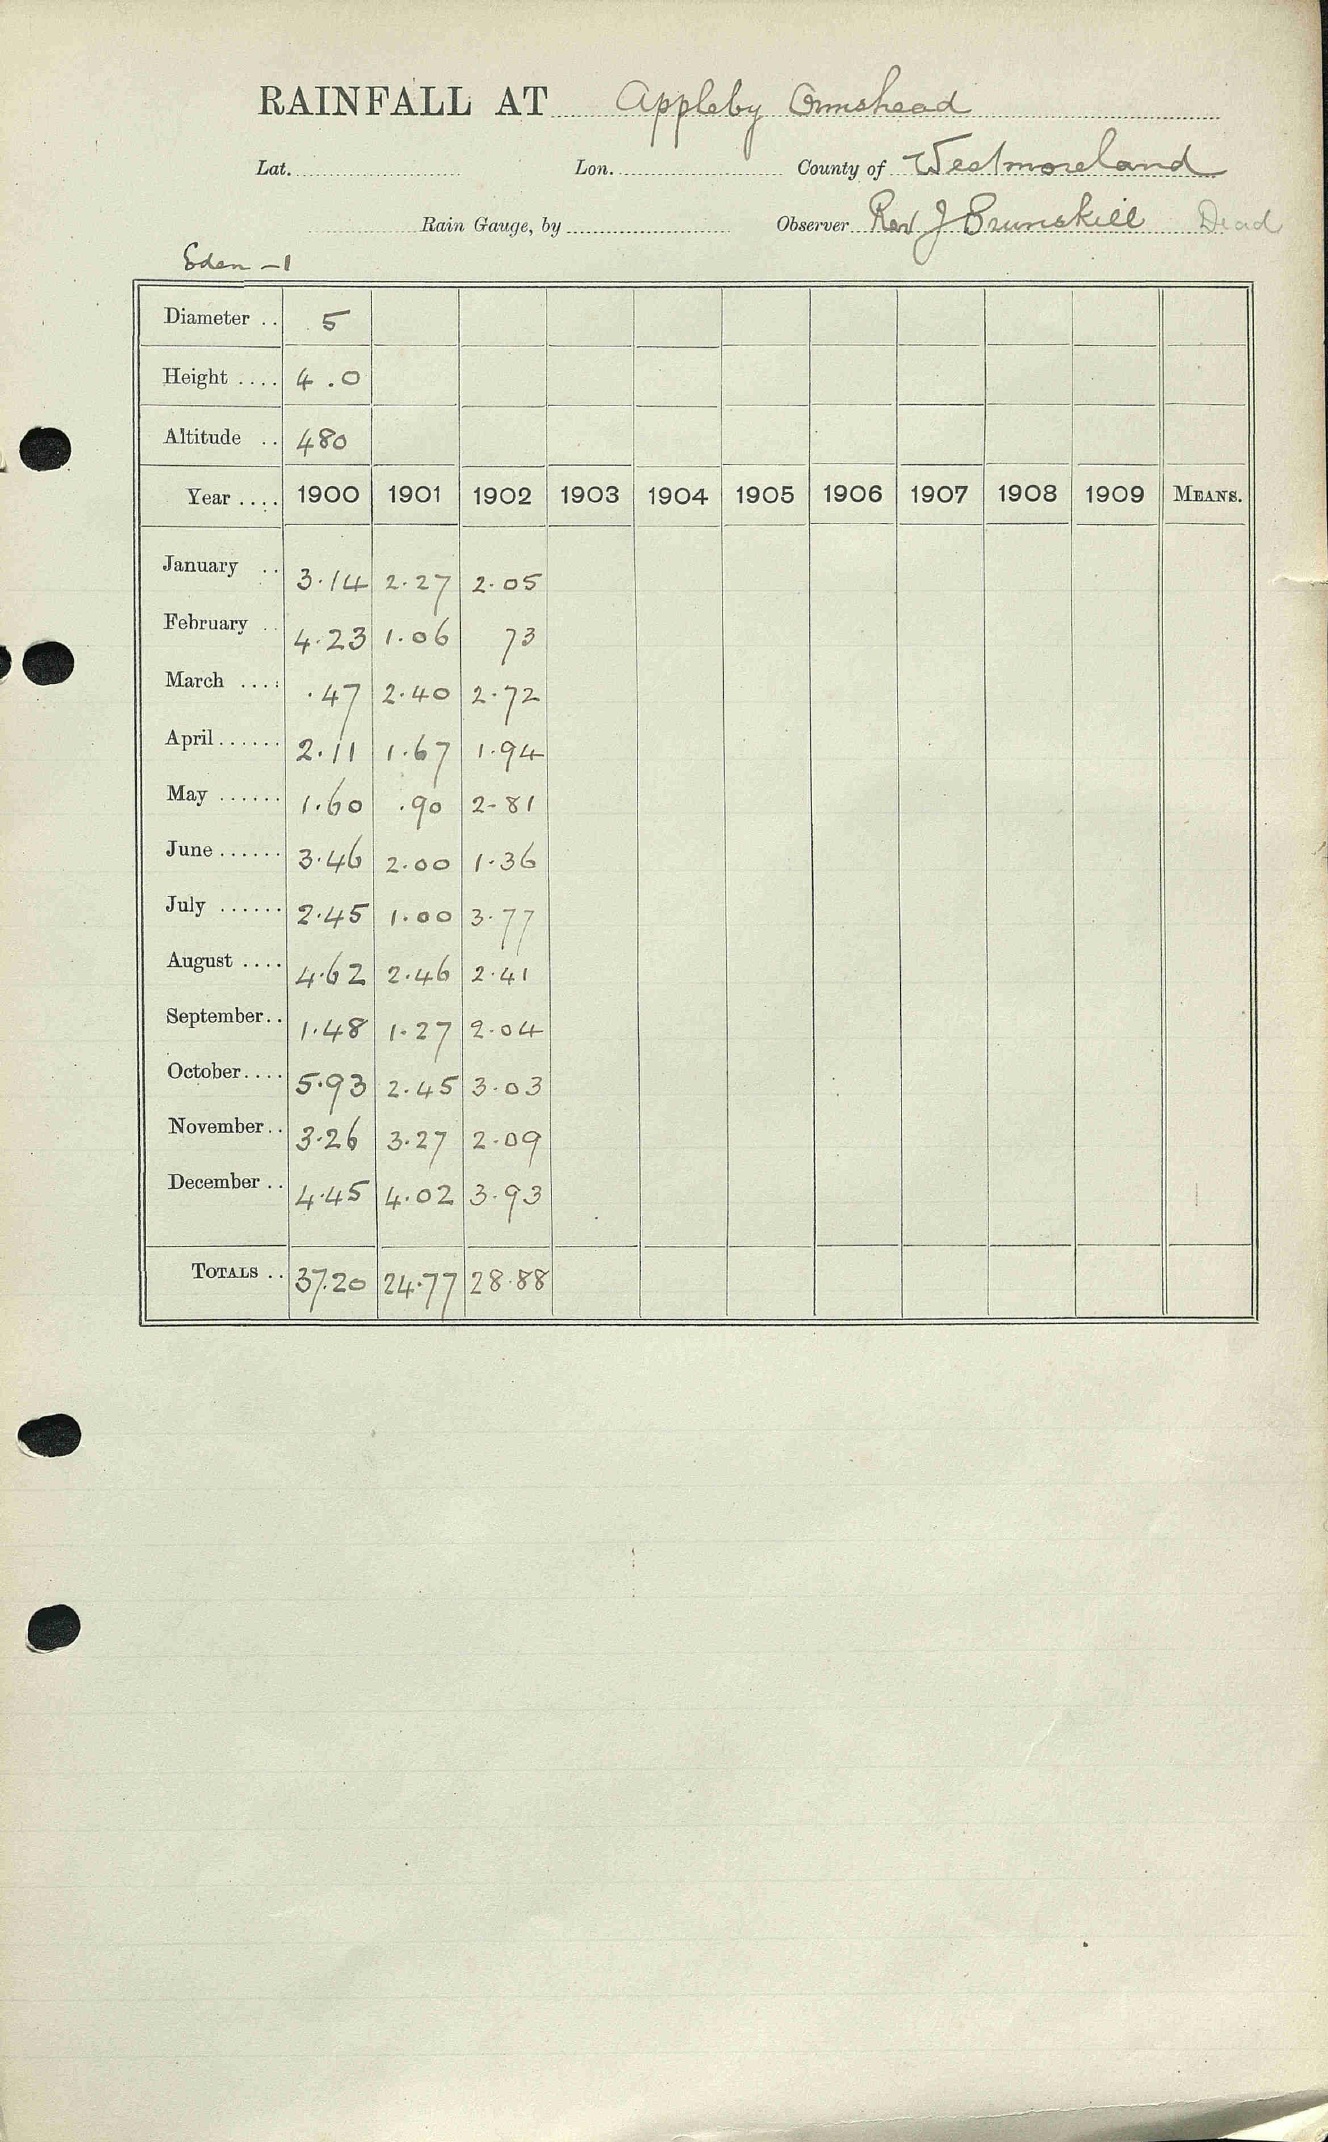 RAINFALL AT Appleby Ormshead
Lat. Lon. County of Westmoreland
Rain Gauge, by Observer Rev J Brunskill Dead
Eden - 1
Diameter .. 5
Height .... 4.0
Altitude .. 480
Year .... 1900 1901 1902 1903 1904 1905 1906 1907 1908 1909 MEANS.
January .. 3.14 2.27 2.05
February .. 4.23 1.06 73
March .... .47 2.40 2.72
April...... 2.11 1.67 1.94
May ...... 1.60 .90 2-81
June...... 3.46 2.00 1.36
July ...... 2.45 1.00 3.77
August .... 4.62 2.46 2.41
September.. 1.48 1.27 2.04
October.... 5.93 2.45 3.03
November.. 3.26 3.27 2.09
December .. 4.45 4.02 3.93
TOTALS .. 37.20 24.77 28.88